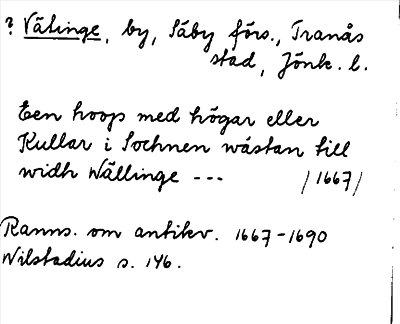 ? Vätinge, by, Säby förs., Tranås
stad, Jönk. l.
Een hoop med högar eller
Kullar i Sochnen wästan till
widh Wällinge --- /1667/
Ranns. om antikv. 1667-1690
Wilstadius s. 146.